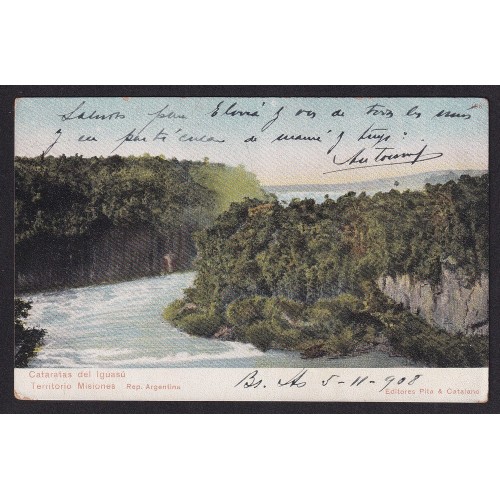 Saludos para Elvira y vos de todos los
y en particular de mamá y tuyo:
Antonio
Cataratas del Iguasú
Territorio Misiones Rep. Argentina
Bs. As 5-11-908
Editores Pita & Catalano